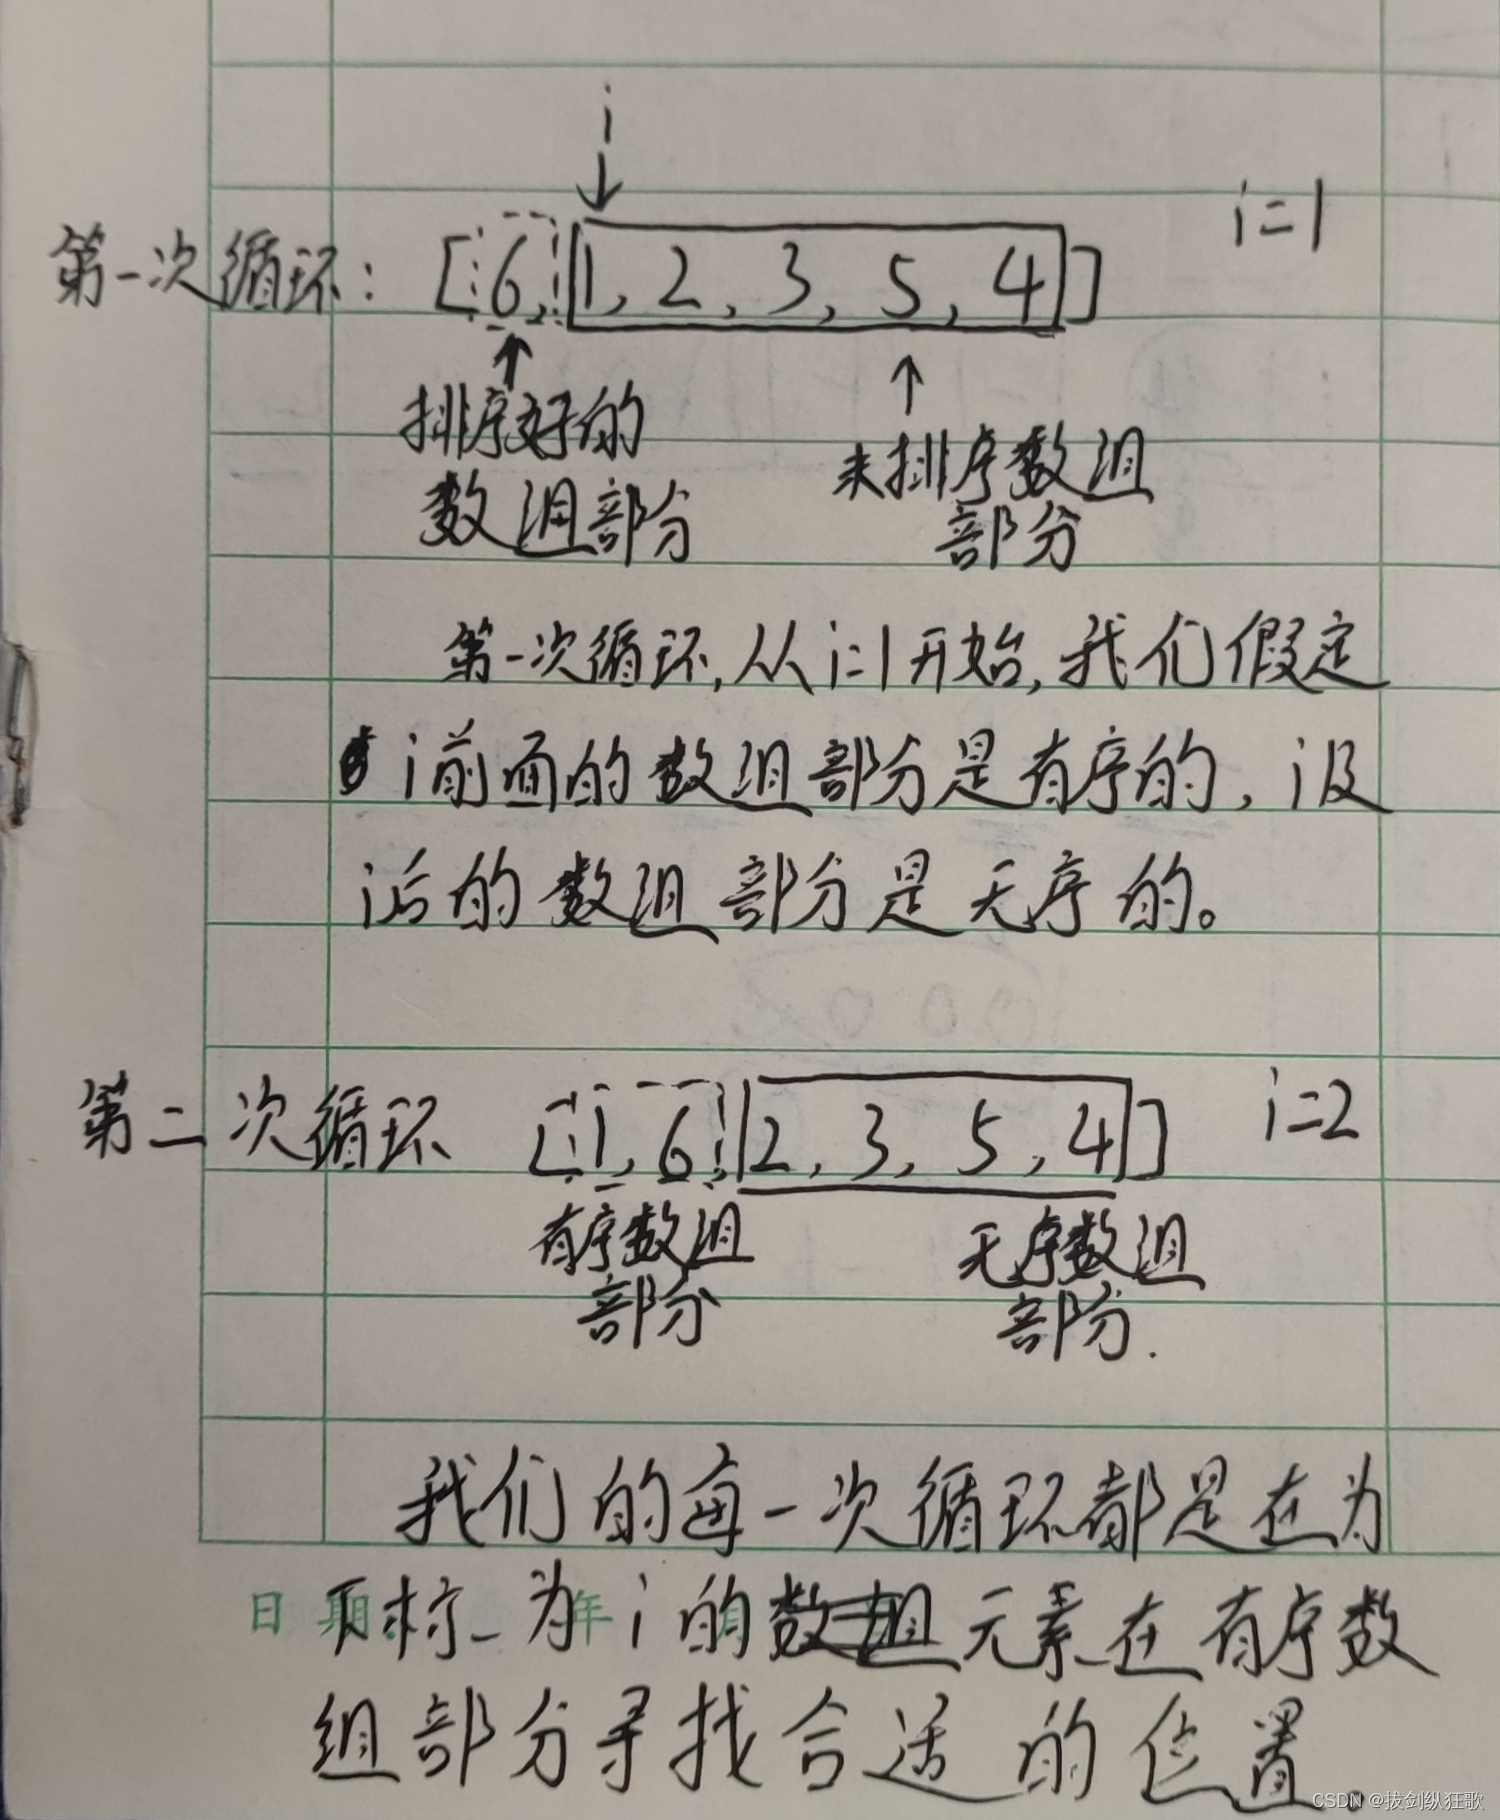 i
↓
第一次循环: [6,1,2,3,5,4] i=1
↑ ↑
排序好的
数组部分
未排序数组
部分
第一次循环,从i=1开始,我们假定
i前面的数组部分是有序的,i及
i后的数组部分是无序的。
第二次循环 [1,6,2,3,5,4] i=2
有序数组
部分
无序数组
部分.
我们的每一次循环都是在为
日期 年
下标为i的数组元素在有序数
组部分寻找合适的位置.
CSDN @拔剑纵狂歌